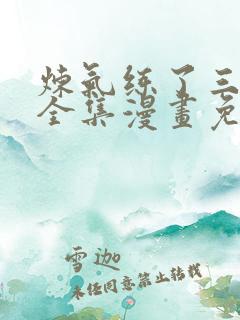 炼氣练了三
全集漫畫免
雪迦
未任同意禁止转载